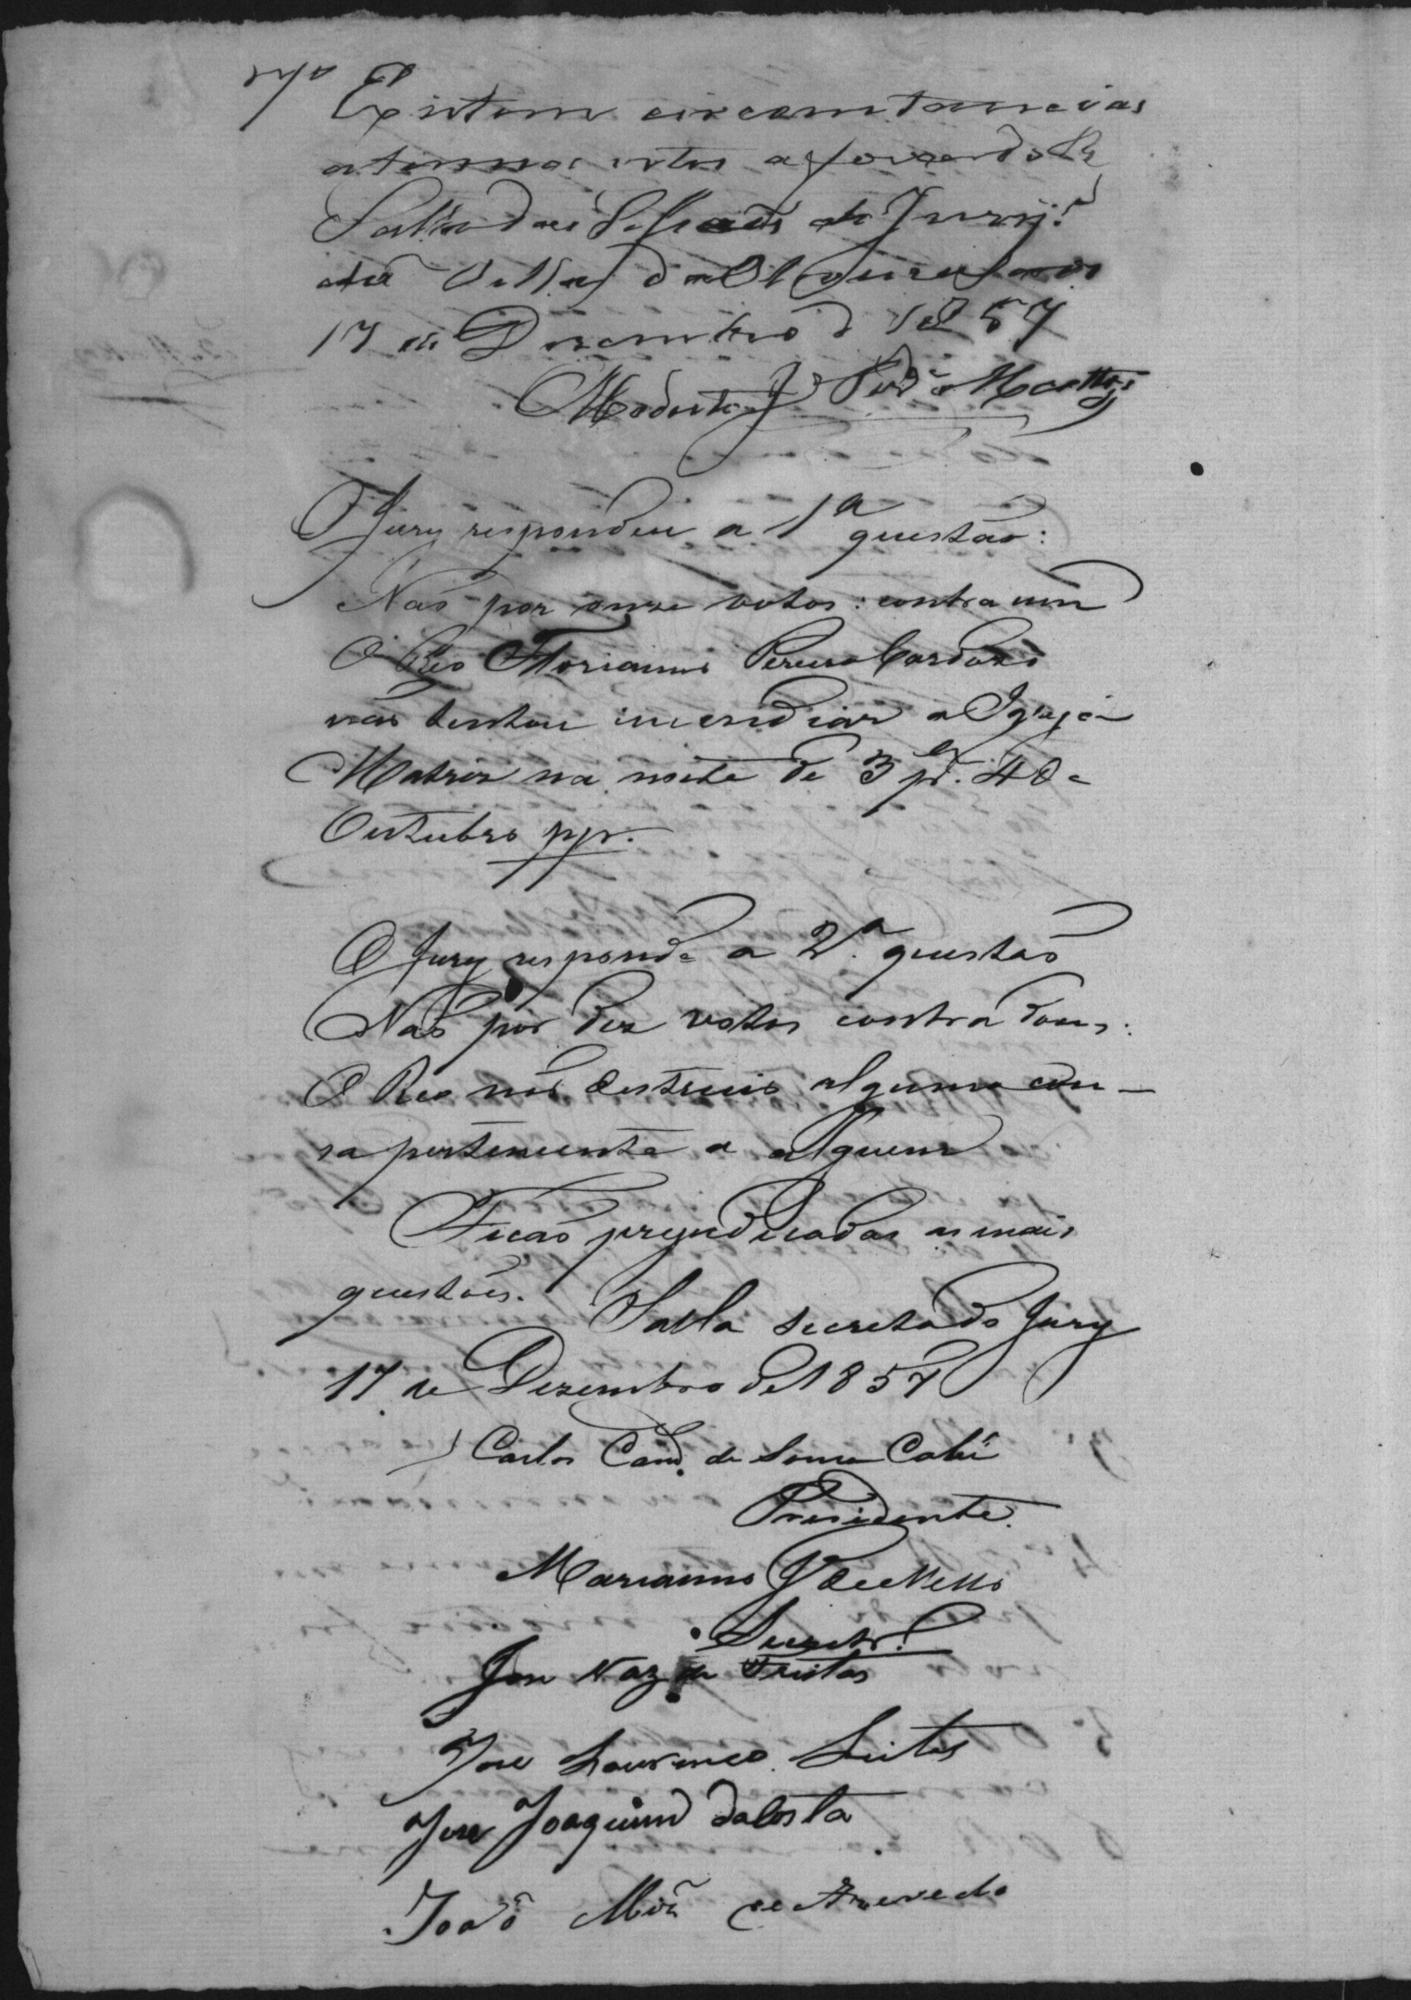 7º Existem circomstancias
atenuantes a favor do Réo
Salla das Sessões do Jury
da Villa de
17 de Dezembro de 1857
Modesto Jº Mattos
O Jury respondeu a 1ª questão:
Não por onze votos: contra um
O Réo Florianno Pereira Cardozo
não tentou incendiar a Igreja
Matriz na noite de 3 pª. 4 de
Outubro pp.
O Jury responde a 2ª. questão
Não por dez votos contra dous:
O Reo não destruio alguma cou-
sa pertencente a alguem
Ficão prejudicadas as mais
questões. Salla secreta do Jury
17 de Dezembro de 1857
Carlos Cand. de Souza
Presidente.
Marianno J de Mello
Secretr.º
Jose Vaz de Freitas
Jose Lourenco Leites
Jose Joaquim da Costa
João de Azevedo